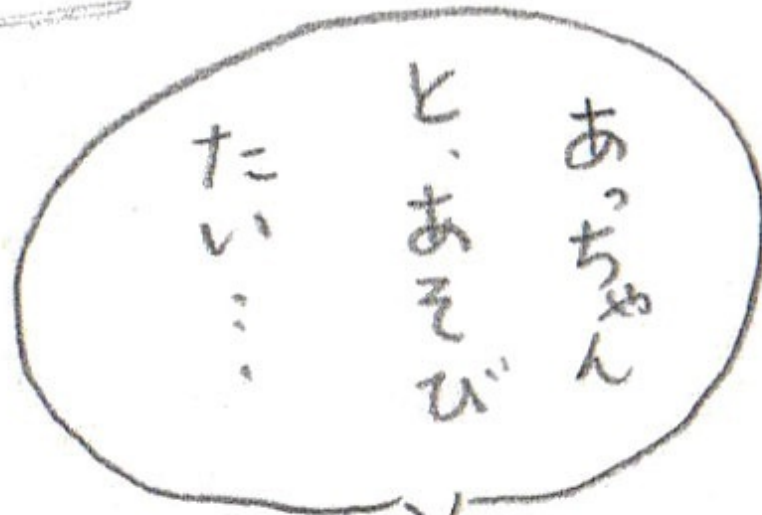 あっちゃん
と、あそび
たい…